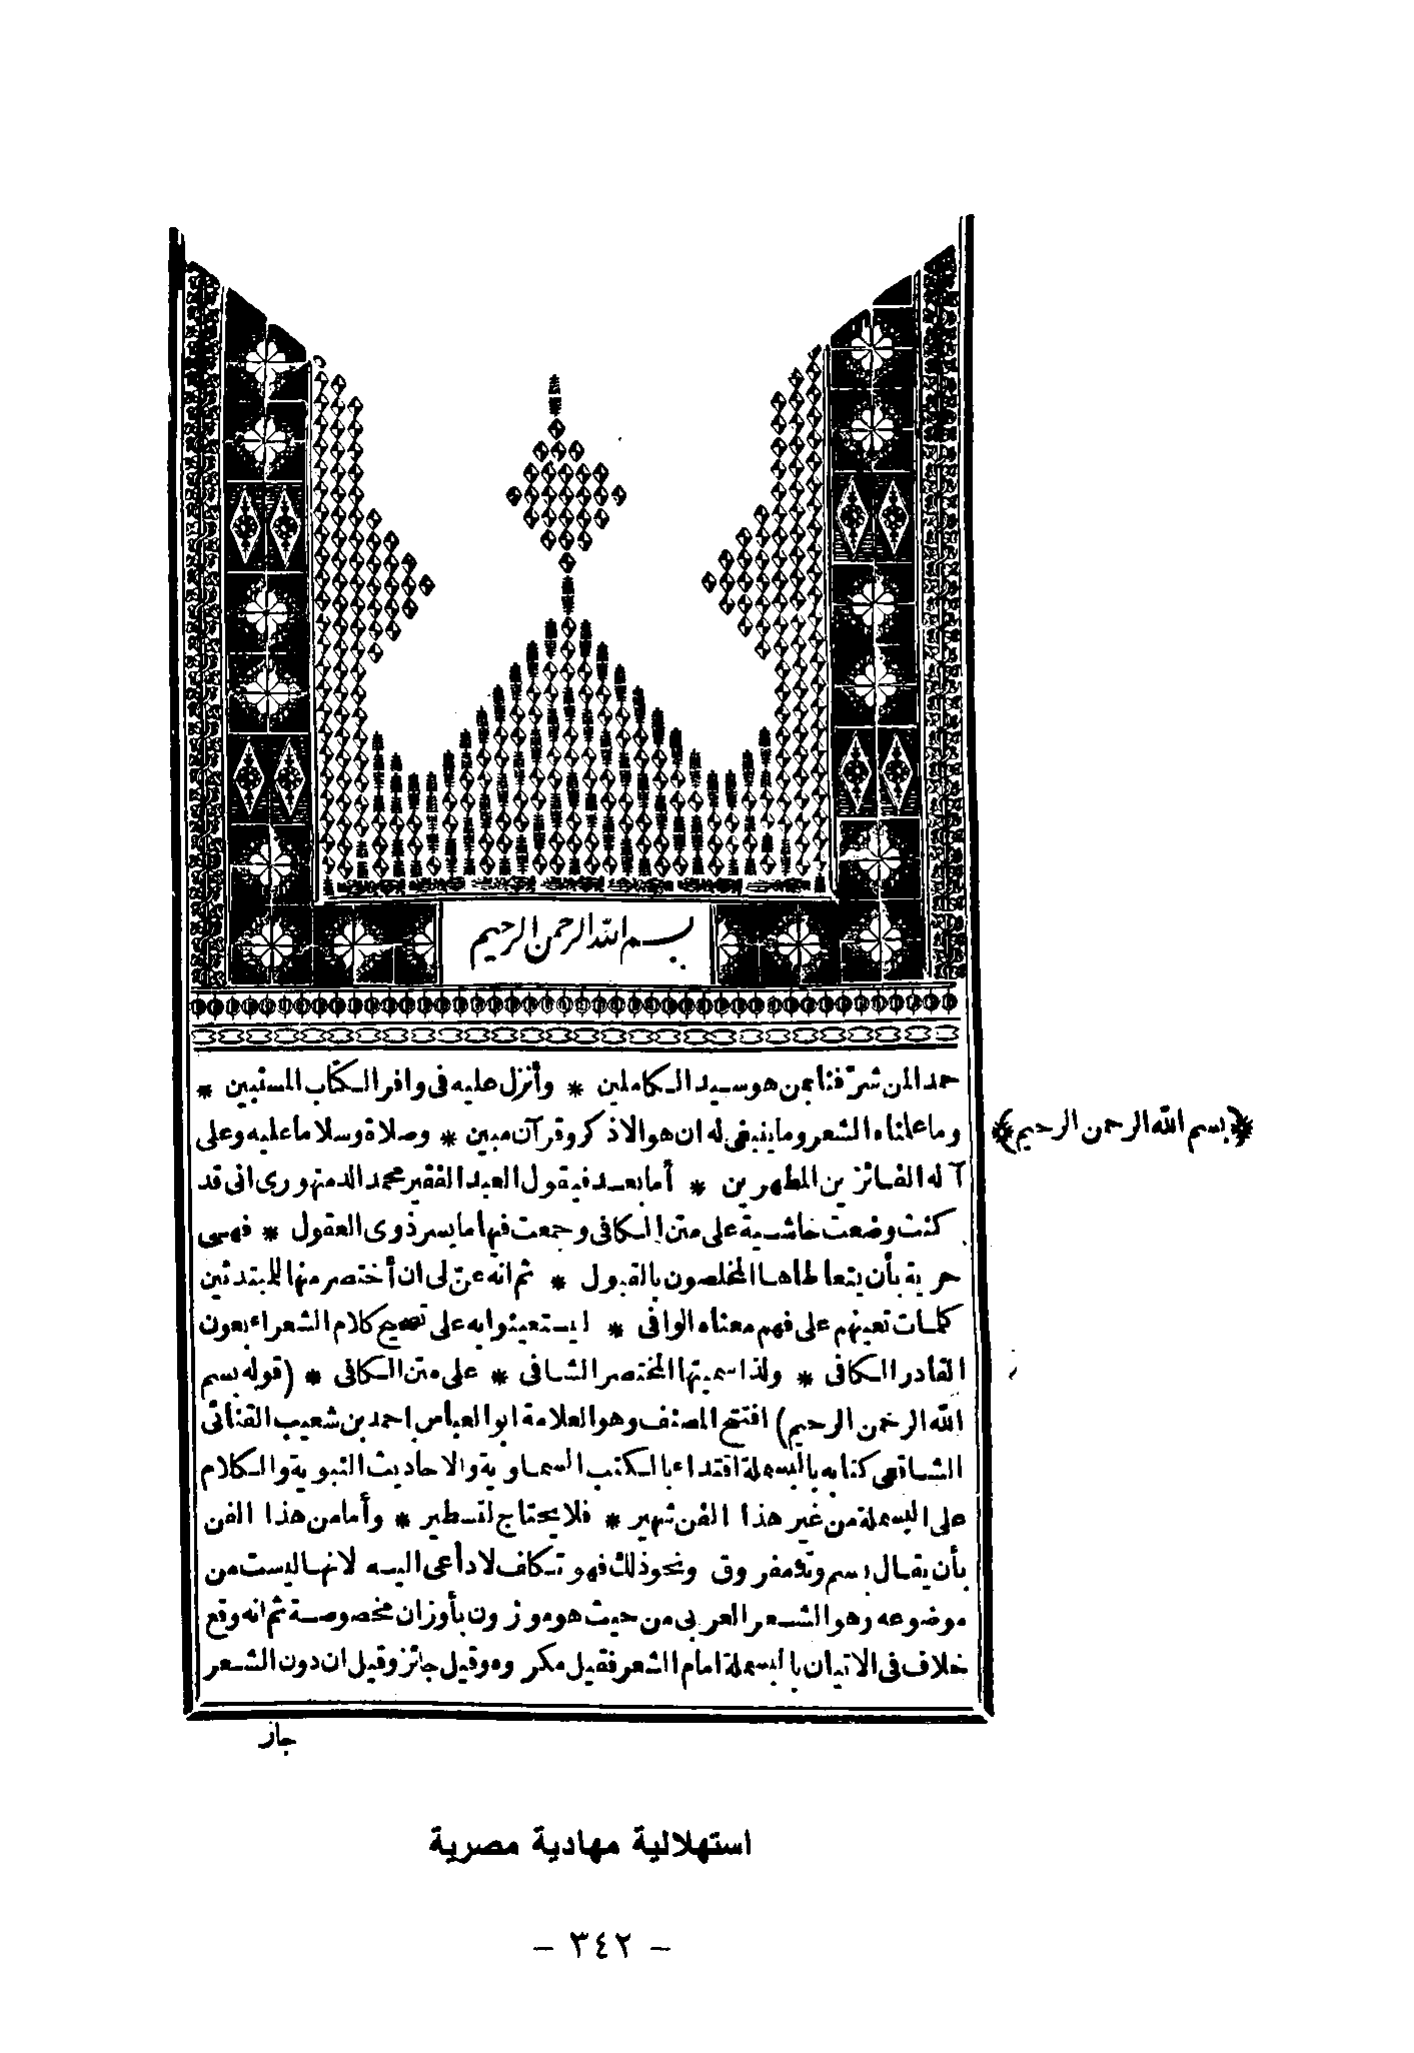 بسم الله الرحمن الرحيم
حمدا لمن شرّفنا بمن هو سيد الكاملين * وأنزل عليه فى وافر الكتاب المستبين *
وما علمناه الشعر وما ينبغى له ان هو الا ذكر وقرآن مبين * وصلاة وسلاما عليه وعلى
﴿بسم الله الرحمن الرحيم﴾
آله الفائزين المطهرين * أما بعد فيقول العبد الفقير محمد الدمنهورى انى قد
كنت وضعت حاشية على متن الكافى وجمعت فيها ما يسر ذوى العقول * فهى
حرية بأن يتعاطاها المخلصون بالقبول * ثم انه عنّ لى ان أختصر منها للمبتدئين
كلمات تعينهم على فهم معناه الوافى * ليستعينوا به على تصحيح كلام الشعراء بعون
القادر الكافى * ولذا سميتها المختصر الشافى * على متن الكافى * (قوله بسم
الله الرحمن الرحيم) افتتح المصنف وهو العلامة ابو العباس احمد بن شعيب القنائى
الشافعى كتابه بالبسملة اقتداء بالكتب السماوية والاحاديث النبوية والكلام
على البسملة من غير هذا الفن شهير * فلا يحتاج لتسطير * وأما من هذا الفن
بأن يقال بسم وتد مفروق ونحو ذلك فهو تكلف لا داعى اليه لانها ليست من
موضوعه وهو الشعر العربى من حيث هو موزون بأوزان مخصوصة ثم انه وقع
خلاف فى الاتيان بالبسملة امام الشعر فقيل مكروه وقيل جائز وقيل ان دون الشعر
جاز
استهلالية مهادية مصرية
- ٣٤٢ -